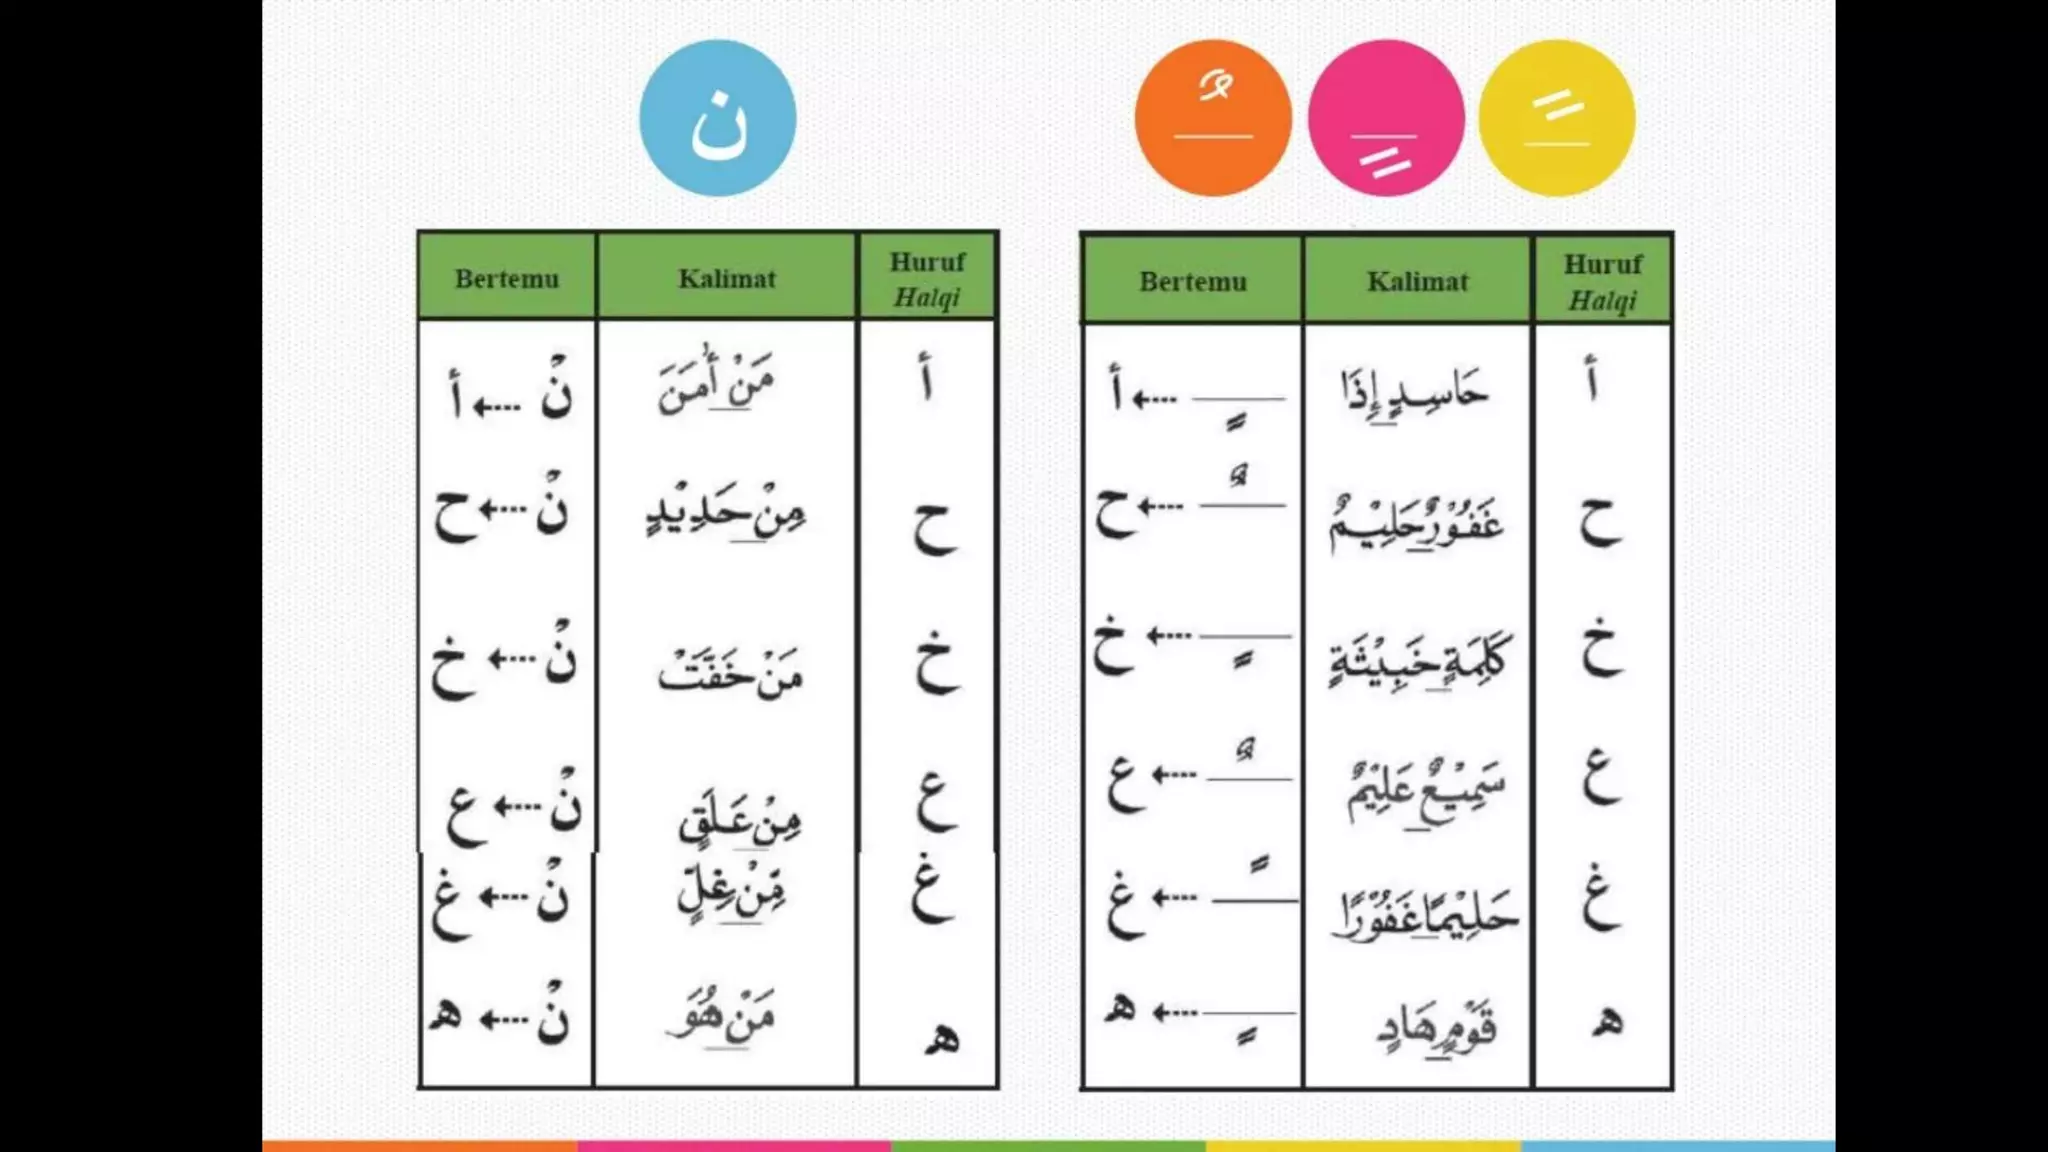 ن
ـٌ ـٍ ـً
Bertemu Kalimat Huruf Halqi
نْ ⇠ أ مَنْ أٰمَنَ أ
نْ ⇠ ح مِنْ حَدِيْدٍ ح
نْ ⇠ خ مَنْ خَفَّتْ خ
نْ ⇠ ع مِنْ عَلَقٍ ع
نْ ⇠ غ مِّنْ غِلٍّ غ
نْ ⇠ ه مَنْ هُوَ ه
Bertemu Kalimat Huruf Halqi
ـٍ ⇠ أ حَاسِدٍ إِذَا أ
ـٌ ⇠ ح غَفُوْرٌ حَلِيْمٌ ح
ـٍ ⇠ خ كَلِمَةٍ خَبِيْثَةٍ خ
ـٌ ⇠ ع سَمِيْعٌ عَلِيْمٌ ع
ـً ⇠ غ حَلِيْمًا غَفُوْرًا غ
ـٍ ⇠ ه قَوْمٍ هَادٍ ه